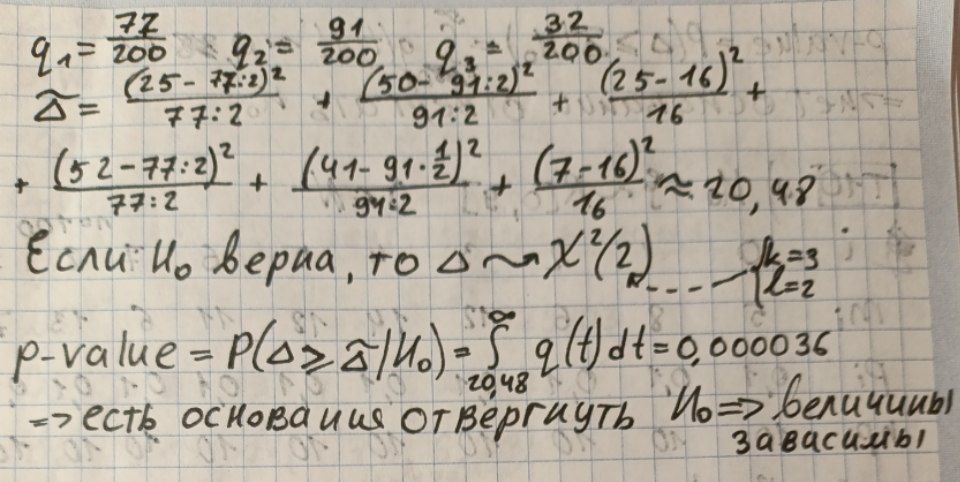 q₁ = 77/200 q₂ = 91/200 q₃ = 32/200
Δ̃ = (25 - 77:2)²/77:2 + (50 - 91:2)²/91:2 + (25 - 16)²/16 +
+ (52 - 77:2)²/77:2 + (41 - 91·1/2)²/91:2 + (7 - 16)²/16 ≈ 20,48
Если H₀ верна, то Δ ⇝ χ²(2) k=3
l=2
p-value = P(Δ ≥ Δ̃ | H₀) = ∫_{20,48}^{∞} q(t) dt = 0,000036
=> есть основания отвергнуть H₀ => величины
зависимы